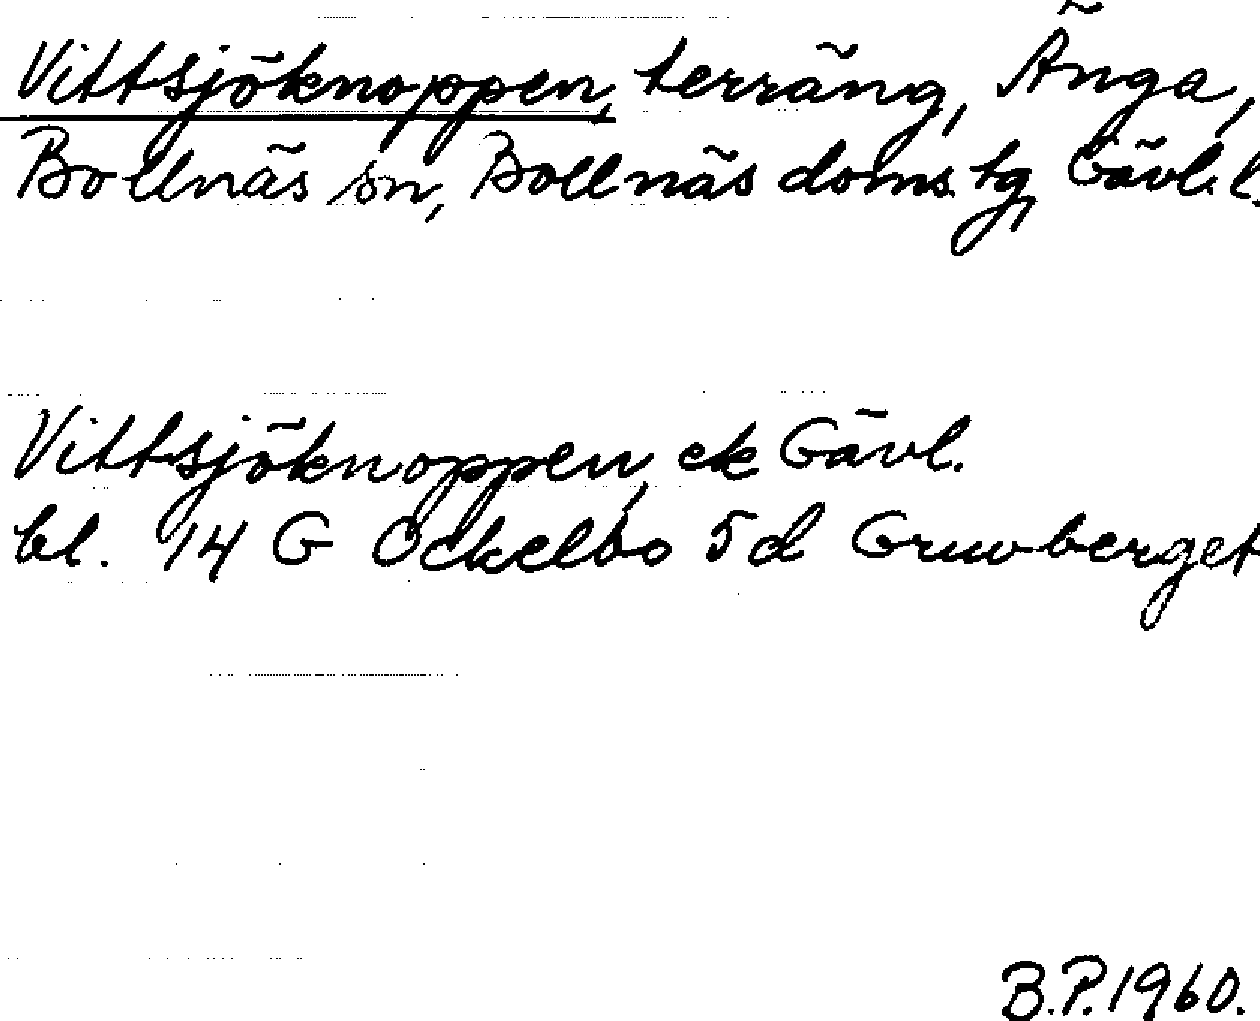 Vittsjöknoppen, terräng, Änga,
Bollnäs sn, Bollnäs doms.tg, Gävl.l.
Vittsjöknoppen, ek Gävl.
bl. 14 G Ockelbo 5d Gruvberget
B.P.1960.